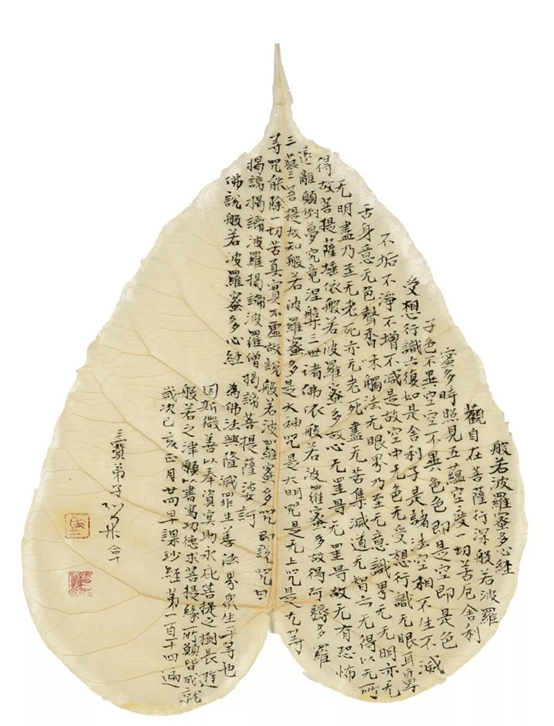 般若波羅蜜多心經
觀自在菩薩行深般若波羅
蜜多時照見五蘊空度一切苦厄舍利
子色不異空空不異色色即是空空即是色
受想行識亦復如是舍利子是諸法空相不生不滅
不垢不淨不增不減是故空中无色无受想行識无眼耳鼻
舌身意无色聲香味觸法无眼界乃至无意識界无无明亦无
无明盡乃至无老死亦无老死盡无苦集滅道无智亦无得以无所
得故菩提薩埵依般若波羅蜜多故心无罣导无罣导故无有恐怖
遠離顛倒夢究竟涅槃三世諸佛依般若波羅蜜多故得阿耨多羅
三藐三菩提故知般若波羅蜜多是大神咒是大明咒是无上咒是无等
等咒能除一切苦真實不虛故說般若波羅蜜多咒即說咒曰
揭諦揭諦波羅揭諦波羅僧揭諦菩提薩婆訶
佛說般若波羅蜜多心經
為佛法興隆滅罪生善法界眾生平等也
因斯微善以奉資冥助永菩提之樹長遊
般若之津願以書寫功德求菩提緣所願皆成就
歲次己亥正月廿四早課抄經第一百十四遍
三寶弟子